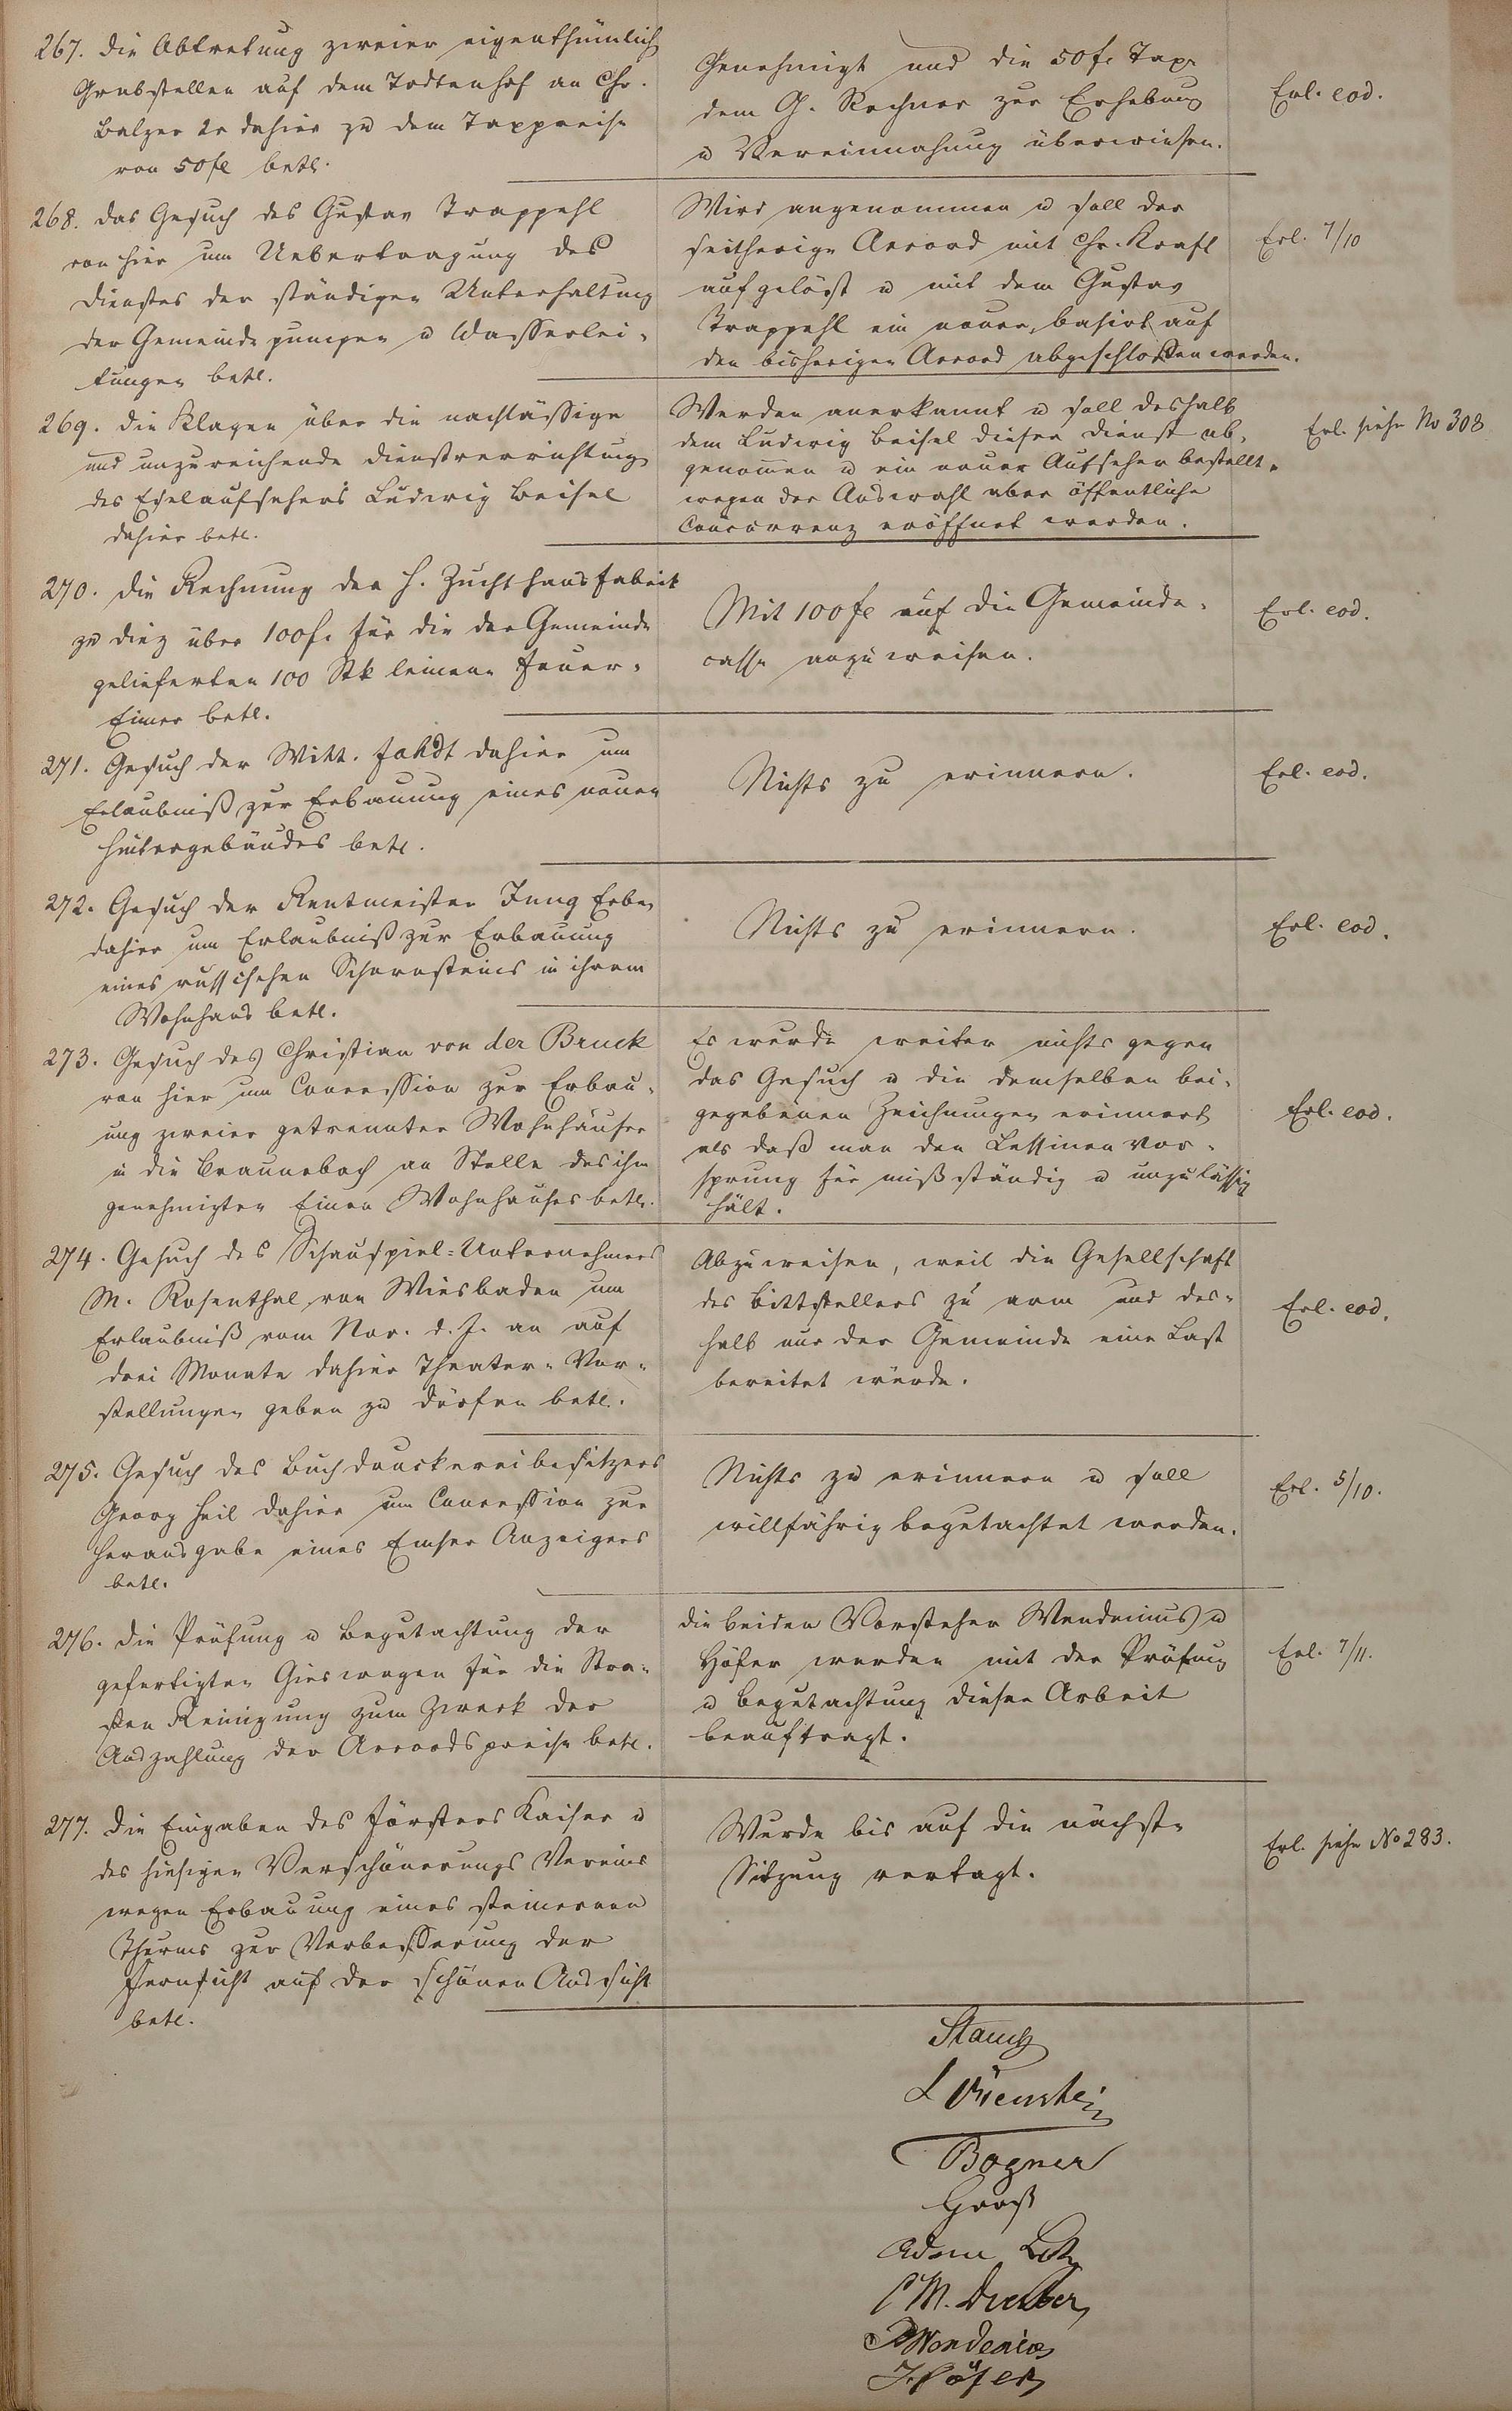 267. die Abtretung zweier eigenthümlich
Grabstellen auf dem Todtenhof an Chr.
Balzer 2r dahier zu dem Taxpreise
von 50 fl betr.
Genehmigt und die 50 fl Taxe
dem G. Rechner zur Erhebung
u Vereinnahmung überwiesen.
Erl. eod.
268. das Gesuch des Gustav Trappehl
von hier um Uebertragung des
Dienstes der ständigen Unterhaltung
der Gemeindepumpen u Wasserlei-
tungen betr.
Wird angenommen u soll der
seitherige Accord mit Chr. Kraft
aufgelöst u mit dem Gustav
Trappehl ein neuer, basirt auf
den bisherigen Accord abgeschlossen werden.
Erl. 7/10
269. die Klagen über die nachlässige
und unzureichende Dienstverrichtung
des Eselaufsehers Ludwig Beisel
dahier betr.
Werden anerkannt u soll deshalb
dem Ludwig Beisel dieser Dienst ab-
genommen u ein neuer Aufseher bestellt,
wegen der Auswahl aber öffentliche
Concurrenz eröffnet werden.
Erl. siehe No 308
270. die Rechnung der H. Zuchthausfabrik
zu Diez über 100 fl für die der Gemeinde
gelieferten 100 Stk leinene Feuer-
Eimer betr.
Mit 100 fl auf die Gemeinde-
casse anzuweisen.
Erl. eod.
271. Gesuch der Witt. Fahdt dahier um
Erlaubniß zur Erbauung eines neuen
Hintergebäudes betr.
Nichts zu erinnern.
Erl. eod.
272. Gesuch der Rentmeister Jung Erben
dahier um Erlaubniß zur Erbauung
eines russischen Schornsteins in ihrem
Wohnhaus betr.
Nichts zu erinnern.
Erl. eod.
273. Gesuch des Christian von der Bruck
von hier um Concession zur Erbau-
ung zweier getrennter Wohnhäuser
in die Braunebach an Stelle des ihm
genehmigten Einen Wohnhauses betr.
Es wurde weiter nichts gegen
das Gesuch u die demselben bei-
gegebenen Zeichnungen erinnert
als daß man den Lessinen Vor-
sprung für mißständig u unzulässig
hält.
Erl. eod.
274. Gesuch des Schauspiel-Unternehmers
M. Rosenthal von Wiesbaden um
Erlaubniß vom Nov. d. J. an auf
drei Monate dahier Theater-Vor-
stellungen geben zu dürfen betr.
Abzuweisen, weil die Gesellschaft
des Bittstellers zu arm und des-
halb nur der Gemeinde eine Last
bereitet würde.
Erl. eod.
275. Gesuch des Buchdruckereibesitzers
Georg Heil dahier um Concession zur
Herausgabe eines Emser Anzeigers
betr.
Nichts zu erinnern u soll
willfährig begutachtet werden.
Erl. 5/10.
276. die Prüfung u Begutachtung der
gefertigten Gieswagen für die Stra-
ßen Reinigung zum Zweck der
Auszahlung der Accordspreise betr.
die beiden Vorsteher Wendenius u
Höfer werden mit der Prüfung
u Begutachtung dieser Arbeit
beauftragt.
Erl. 7/11.
277. die Eingaben des Försters Kaiser u
des hiesigen Verschönerungs Vereins
wegen Erbauung eines steinernen
Thurms zur Verbesserung der
Fernsicht auf der schönen Aussicht
betr.
Wurde bis auf die nächste
Sitzung vertagt.
Erl. siehe No 283.
Bogner
Adam
P M.
Wendenius
J. Höfer